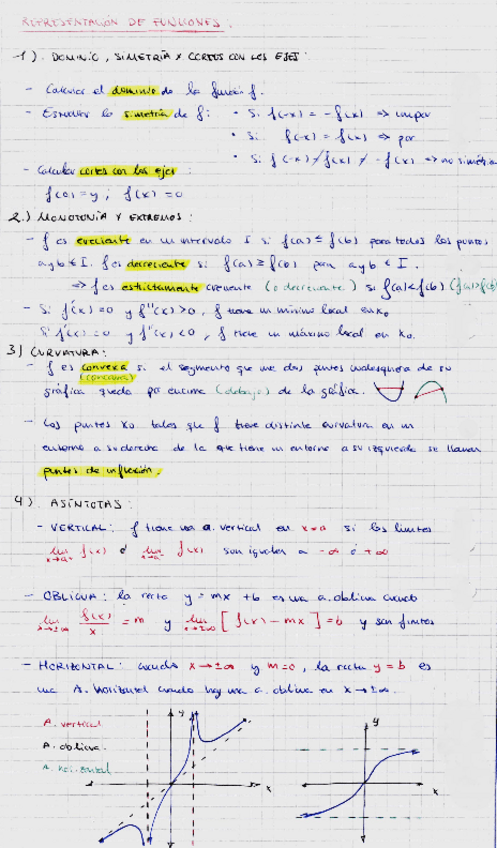 REPRESENTACIÓN DE FUNCIONES:
1) DOMINIO, SIMETRÍA Y CORTES CON LOS EJES:
- Calcular el dominio de la función f.
- Estudiar la simetría de f: • Si f(-x) = -f(x) ⇒ impar
• Si f(-x) = f(x) ⇒ par
• Si f(-x) ≠ f(x) ≠ -f(x) ⇒ no simétrica
- Calcular cortes con los ejes:
f(0)=y ; f(x)=0
2.) MONOTONÍA Y EXTREMOS:
- f es creciente en un intervalo I si f(a) ≤ f(b) para todos los puntos
a y b ∈ I. f es decreciente si f(a) ≥ f(b) para a y b ∈ I.
⇒ f es estrictamente creciente (o decreciente) si f(a)<f(b) (f(a)>f(b))
- Si f'(x)=0 y f''(x)>0, f tiene un mínimo local en x₀
Si f'(x)=0 y f''(x)<0, f tiene un máximo local en x₀.
3) CURVATURA:
- f es convexa si el segmento que une dos puntos cualesquiera de su
(cóncava)
gráfica queda por encima (debajo) de la gráfica.
- Los puntos x₀ tales que f tiene distinta curvatura en un
entorno a su derecha de la que tiene un entorno a su izquierda se llaman
puntos de inflexión.
4) ASÍNTOTAS:
- VERTICAL: f tiene una a. vertical en x=a si los límites
lim x→a⁺ f(x) ó lim x→a⁻ f(x) son iguales a -∞ ó +∞
- OBLICUA: la recta y = mx + b es una a. oblicua cuando
lim x→±∞ f(x)/x = m y lim x→±∞ [f(x) - mx] = b y son finitos
- HORIZONTAL: cuando x→±∞ y m=0, la recta y = b es
una A. horizontal cuando hay una a. oblicua en x→±∞.
A. vertical
A. oblicua
A. horizontal
y
x
y
x